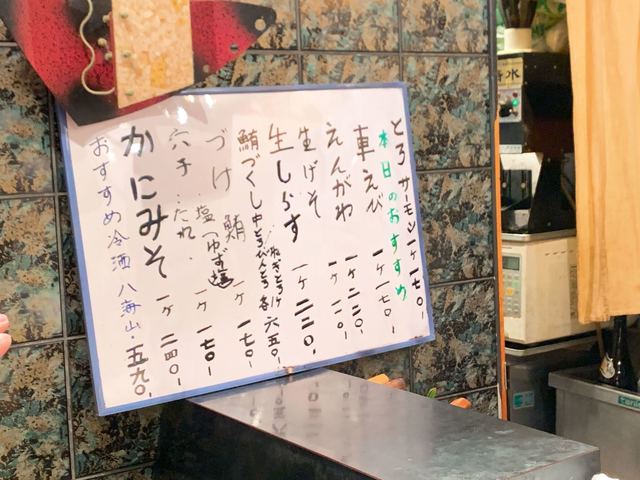 本日のおすすめ
とろサーモン 一ヶ 一七〇-
車えび 一ヶ 一七〇-
えんがわ 一ヶ 二二〇-
生げそ 一ヶ 一二〇-
生しらす 一ヶ 二二〇-
鮪づくし 中とろ びんとろ ねぎとろ 各 六五〇-
づけ鮪 一ヶ 一七〇-
穴子 たれ 塩(ゆず塩) 一ヶ 一七〇-
かにみそ 一ヶ 二四〇-
おすすめ冷酒 八海山 五九〇-
水